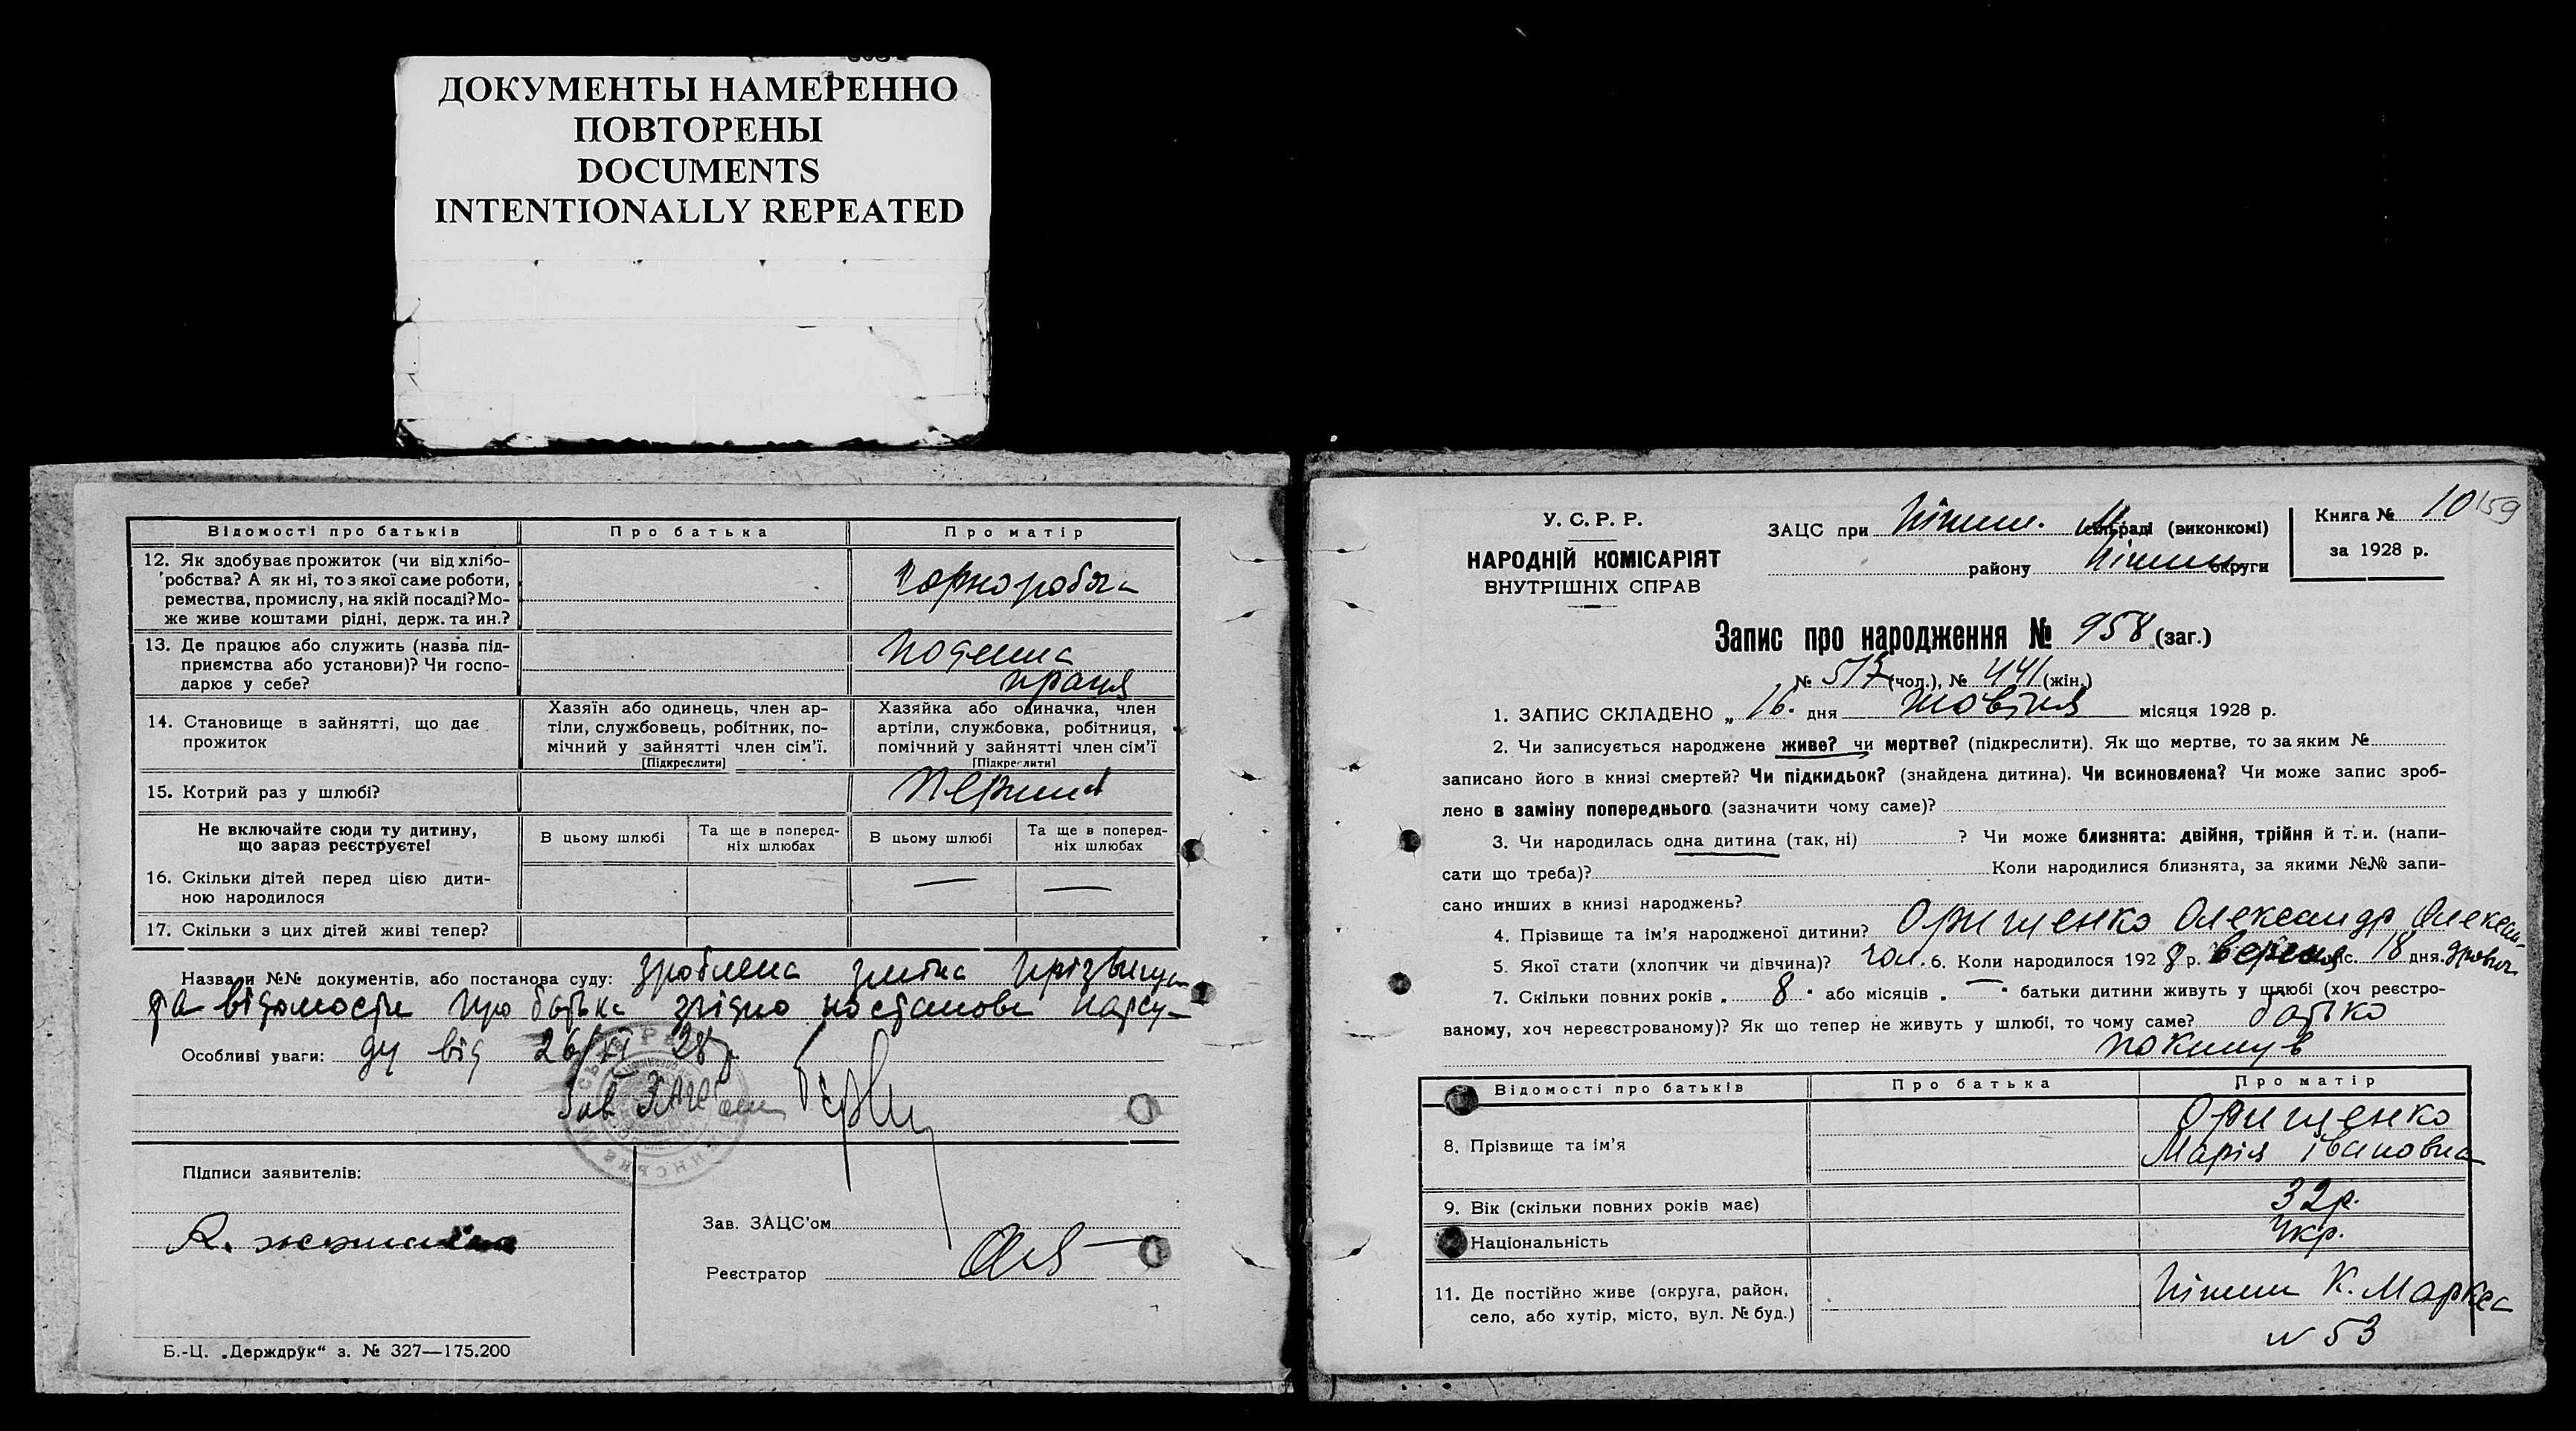 ДОКУМЕНТЫ НАМЕРЕННО
ПОВТОРЕНЫ
DOCUMENTS
INTENTIONALLY REPEATED
Відомості про батьків Про батька Про матір
12. Як здобуває прожиток (чи від хлібо-
робства? А як ні, то з якої саме роботи,
ремества, промислу, на якій посаді? Мо-
же живе коштами рідні, держ. та ин.?
Чорноробоча
13. Де працює або служить (назва під-
приємства або установи)? Чи госпо-
дарює у себе?
Поденна
праця
14. Становище в зайнятті, що дає
прожиток
Хазяїн або одинець, член ар-
тіли, службовець, робітник, по-
мічний у зайнятті член сім'ї.
[Підкреслити]
Хазяйка або одиначка, член
артіли, службовка, робітниця,
помічний у зайнятті член сім'ї
[Підкреслити]
15. Котрий раз у шлюбі? Перший
Не включайте сюди ту дитину,
що зараз реєструєте!
В цьому шлюбі
Та ще в поперед-
ніх шлюбах
В цьому шлюбі
Та ще в поперед-
ніх шлюбах
16. Скільки дітей перед цією дити-
ною народилося — —
17. Скільки з цих дітей живі тепер?
Назва й №№ документів, або постанова суду: зроблена зміна прізвища
та відомости про батька згідно постанови нарсу-
Особливі уваги: ду від 26/XI 28 р.
Зав. ЗАГС
Підписи заявителів:
Зав. ЗАЦС'ом
Реєстратор
Б.-Ц. „Держдрук“ з. № 327—175.200
У. С. Р. Р.
НАРОДНІЙ КОМІСАРІЯТ
ВНУТРІШНІХ СПРАВ
ЗАЦС при Ніжин. М. сільраді (виконкомі)
району Ніжин. округи
Книга № 10 159
за 1928 р.
Запис про народження № 958 (заг.)
№ 517 (чол.), № 441 (жін.)
1. ЗАПИС СКЛАДЕНО „ 16. дня Жовтня місяця 1928 р.
2. Чи записується народжене живе? чи мертве? (підкреслити). Як що мертве, то за яким №
записано його в книзі смертей? Чи підкидьок? (знайдена дитина). Чи всиновлена? Чи може запис зроб-
лено в заміну попереднього (зазначити чому саме)?
3. Чи народилась одна дитина (так, ні) ? Чи може близнята: двійня, трійня й т. и. (напи-
сати що треба)? Коли народилися близнята, за якими №№ запи-
сано инших в книзі народжень?
4. Прізвище та ім'я народженої дитини? Орищенко Олександр Олексан-
5. Якої стати (хлопчик чи дівчина)? чол. 6. Коли народилося 192 8 р. вересня міс. 18 дня. дрович
7. Скільки повних років „ 8 “ або місяців „ — “ батьки дитини живуть у шлюбі (хоч реєстро-
ваному, хоч нереєстрованому)? Як що тепер не живуть у шлюбі, то чому саме? батько
покинув
Відомості про батьків Про батька Про матір
8. Прізвище та ім'я
Орищенко
Марія Івановна
9. Вік (скільки повних років має) 32 р.
Національність Укр.
11. Де постійно живе (округа, район,
село, або хутір, місто, вул. № буд.)
Ніжин К. Маркса
№ 53